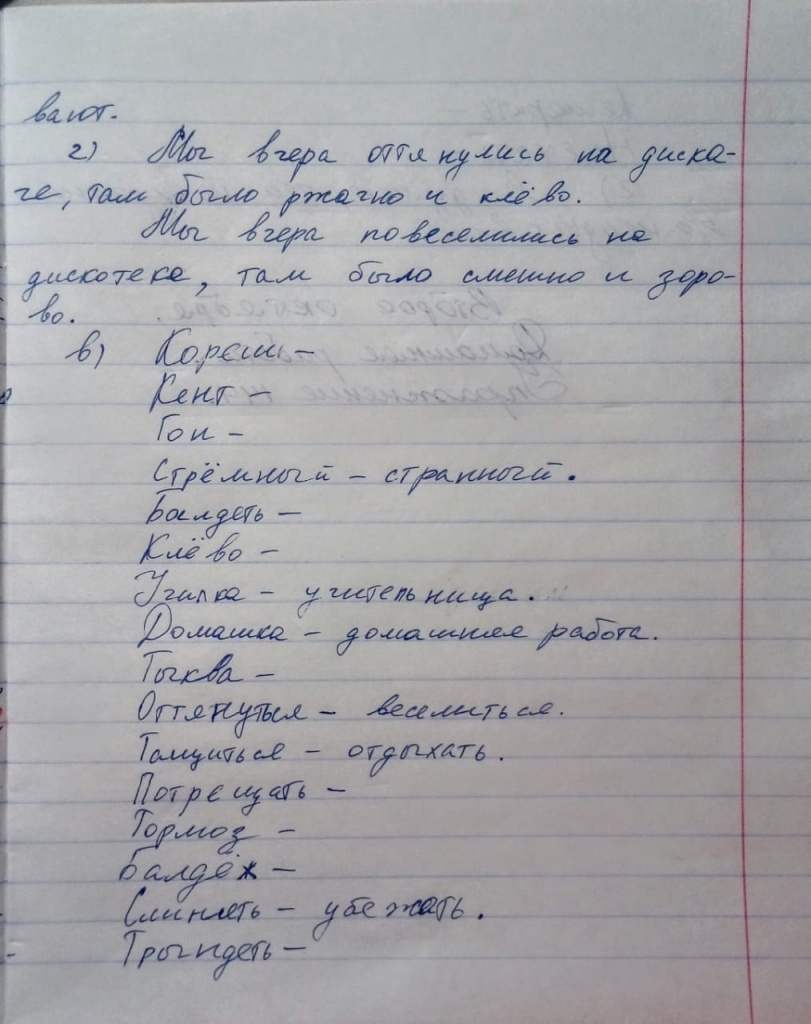 вают.
2) Мы вчера оттянулись на диска-
че, там было ржачно и клёво.
Мы вчера повеселились на
дискотеке, там было смешно и здоро-
во.
в) Корешь -
Кент -
Гон -
Стрёмный - странный.
Балдеть -
Клёво -
Училка - учительница.
Домашка - домашнее работа.
Тыква -
Оттянутья - веселиться.
Тащиться - отдыхать.
Потрещать -
Тормоз -
Балдёж -
Слинять - убежать.
Трындеть -